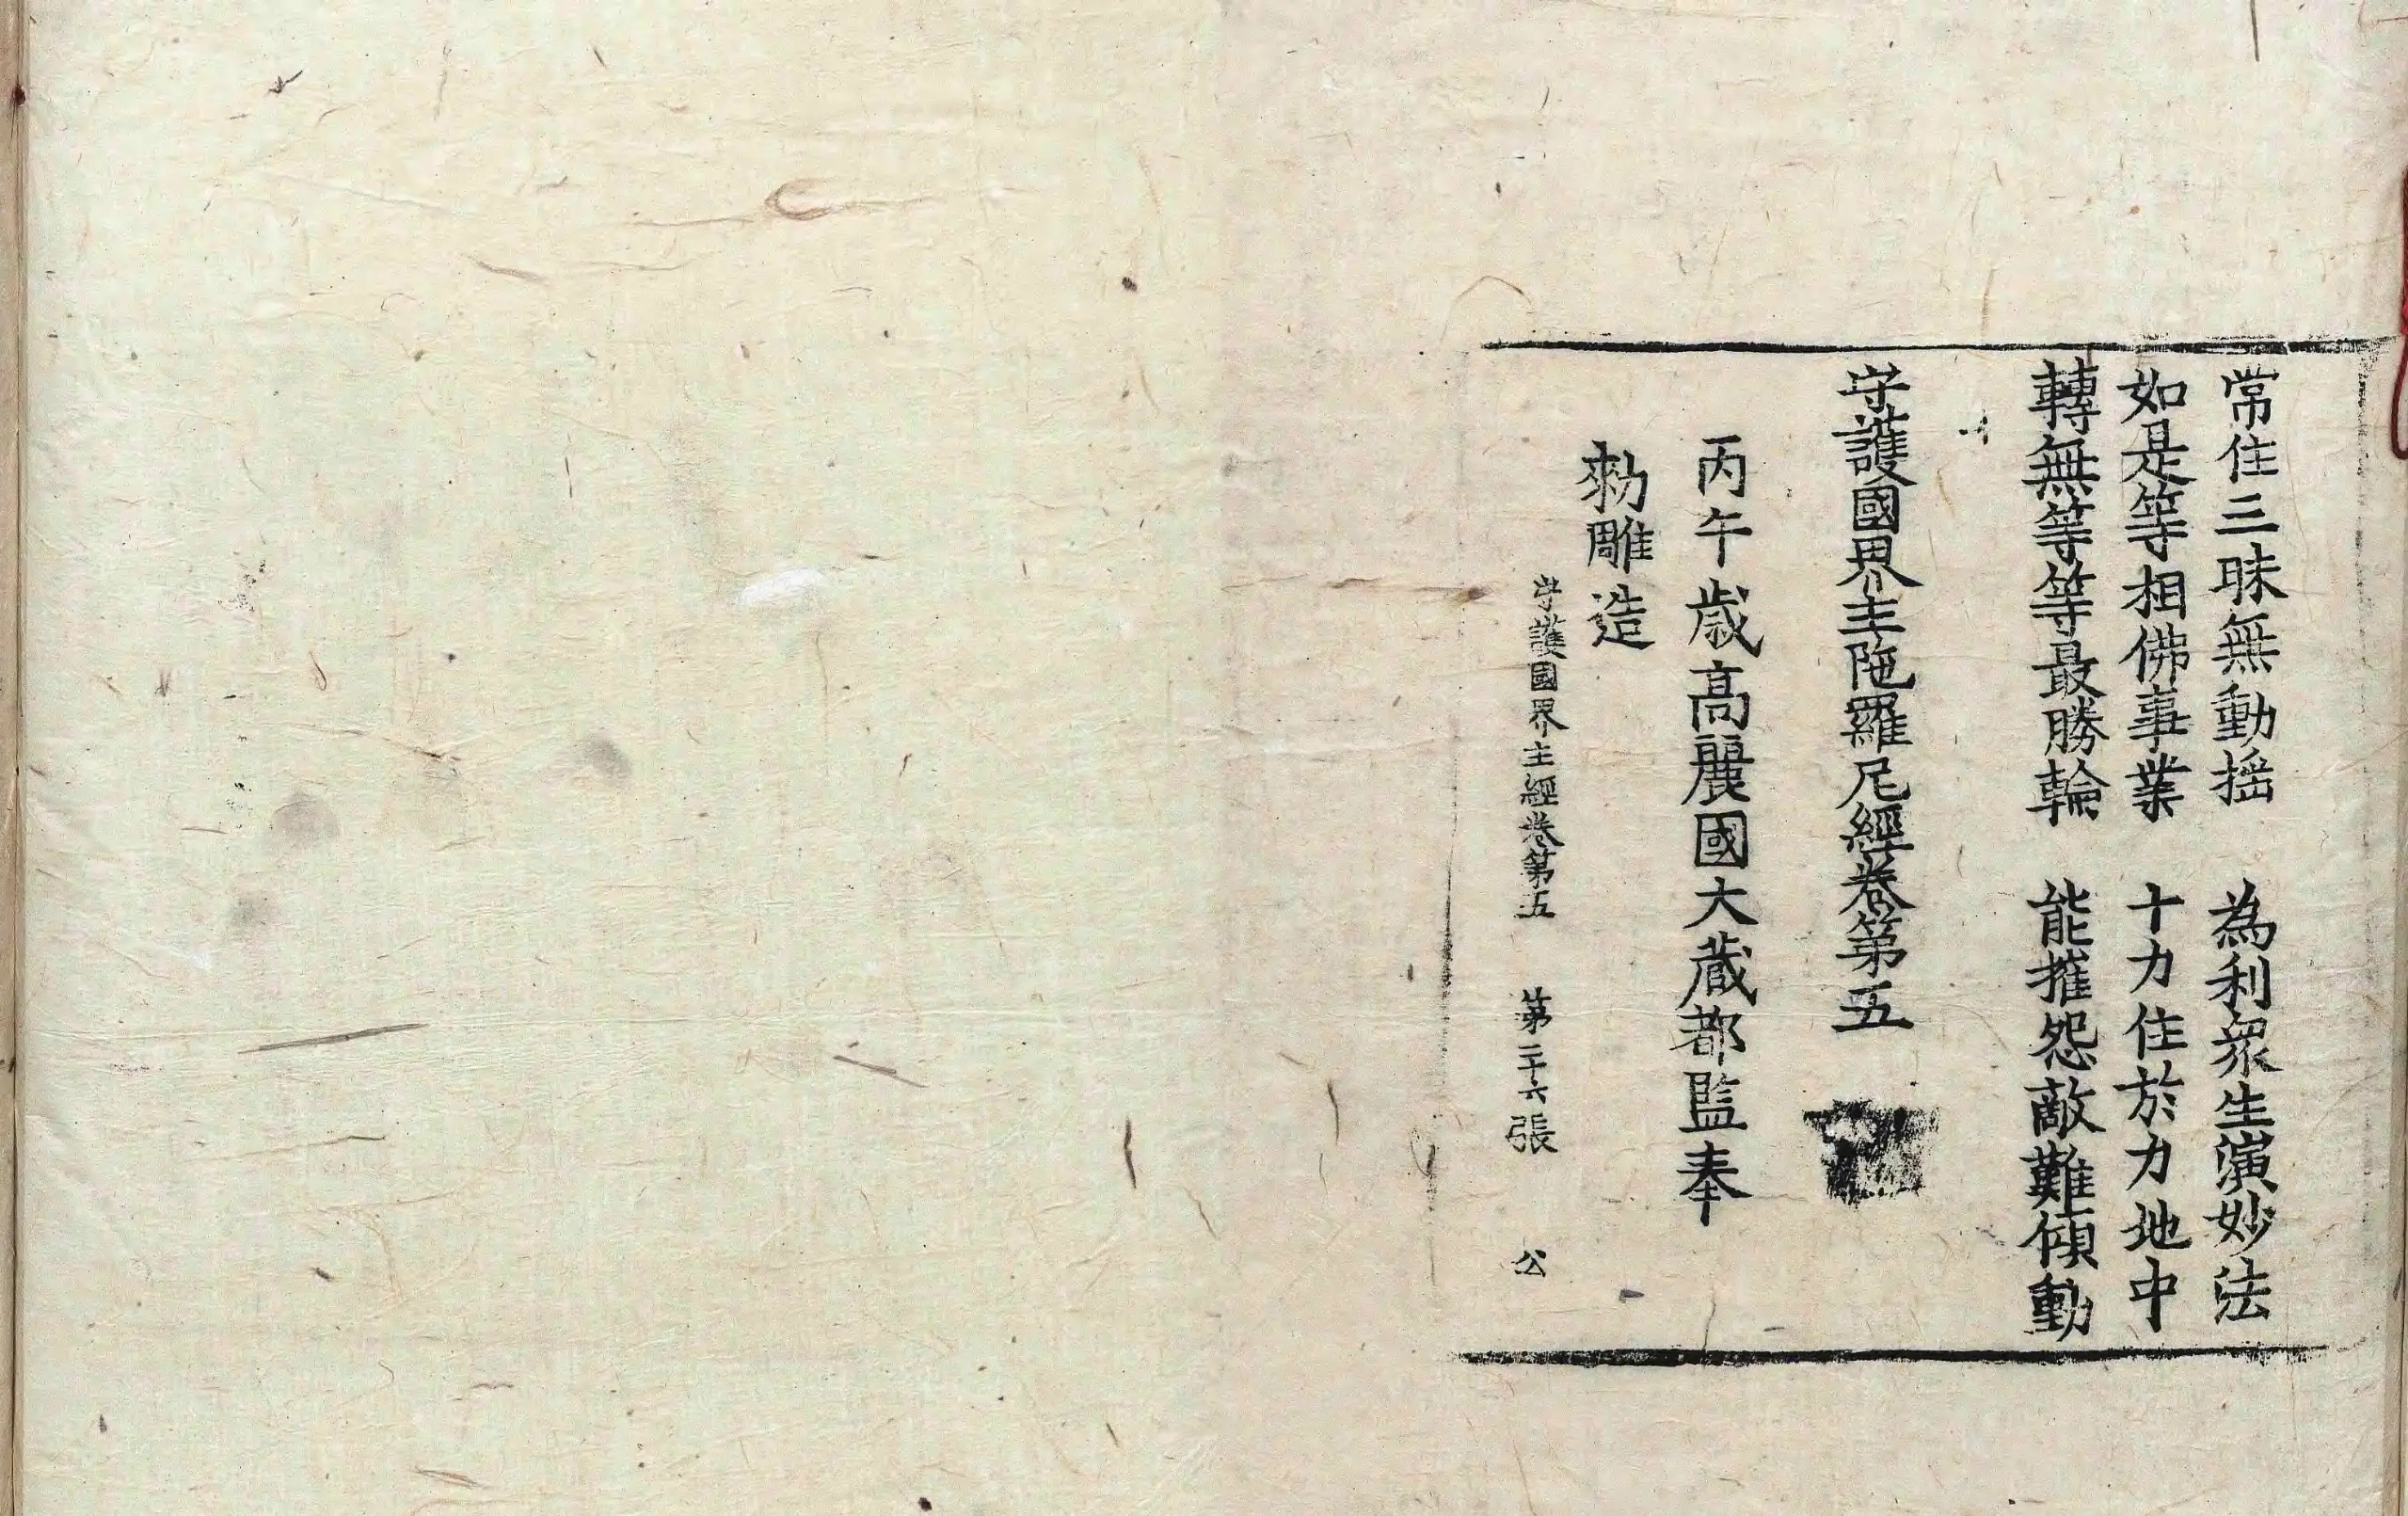 常住三昧無動揺　為利衆生演妙法
如是等相佛事業　十力住於力地中
轉無等等等最勝輪　能摧怨敵難傾動
守護國界主陁羅尼經卷第五
丙午歳髙麗國大藏都監奉
勑雕造
守護國界主經卷第五　第二十六張　公